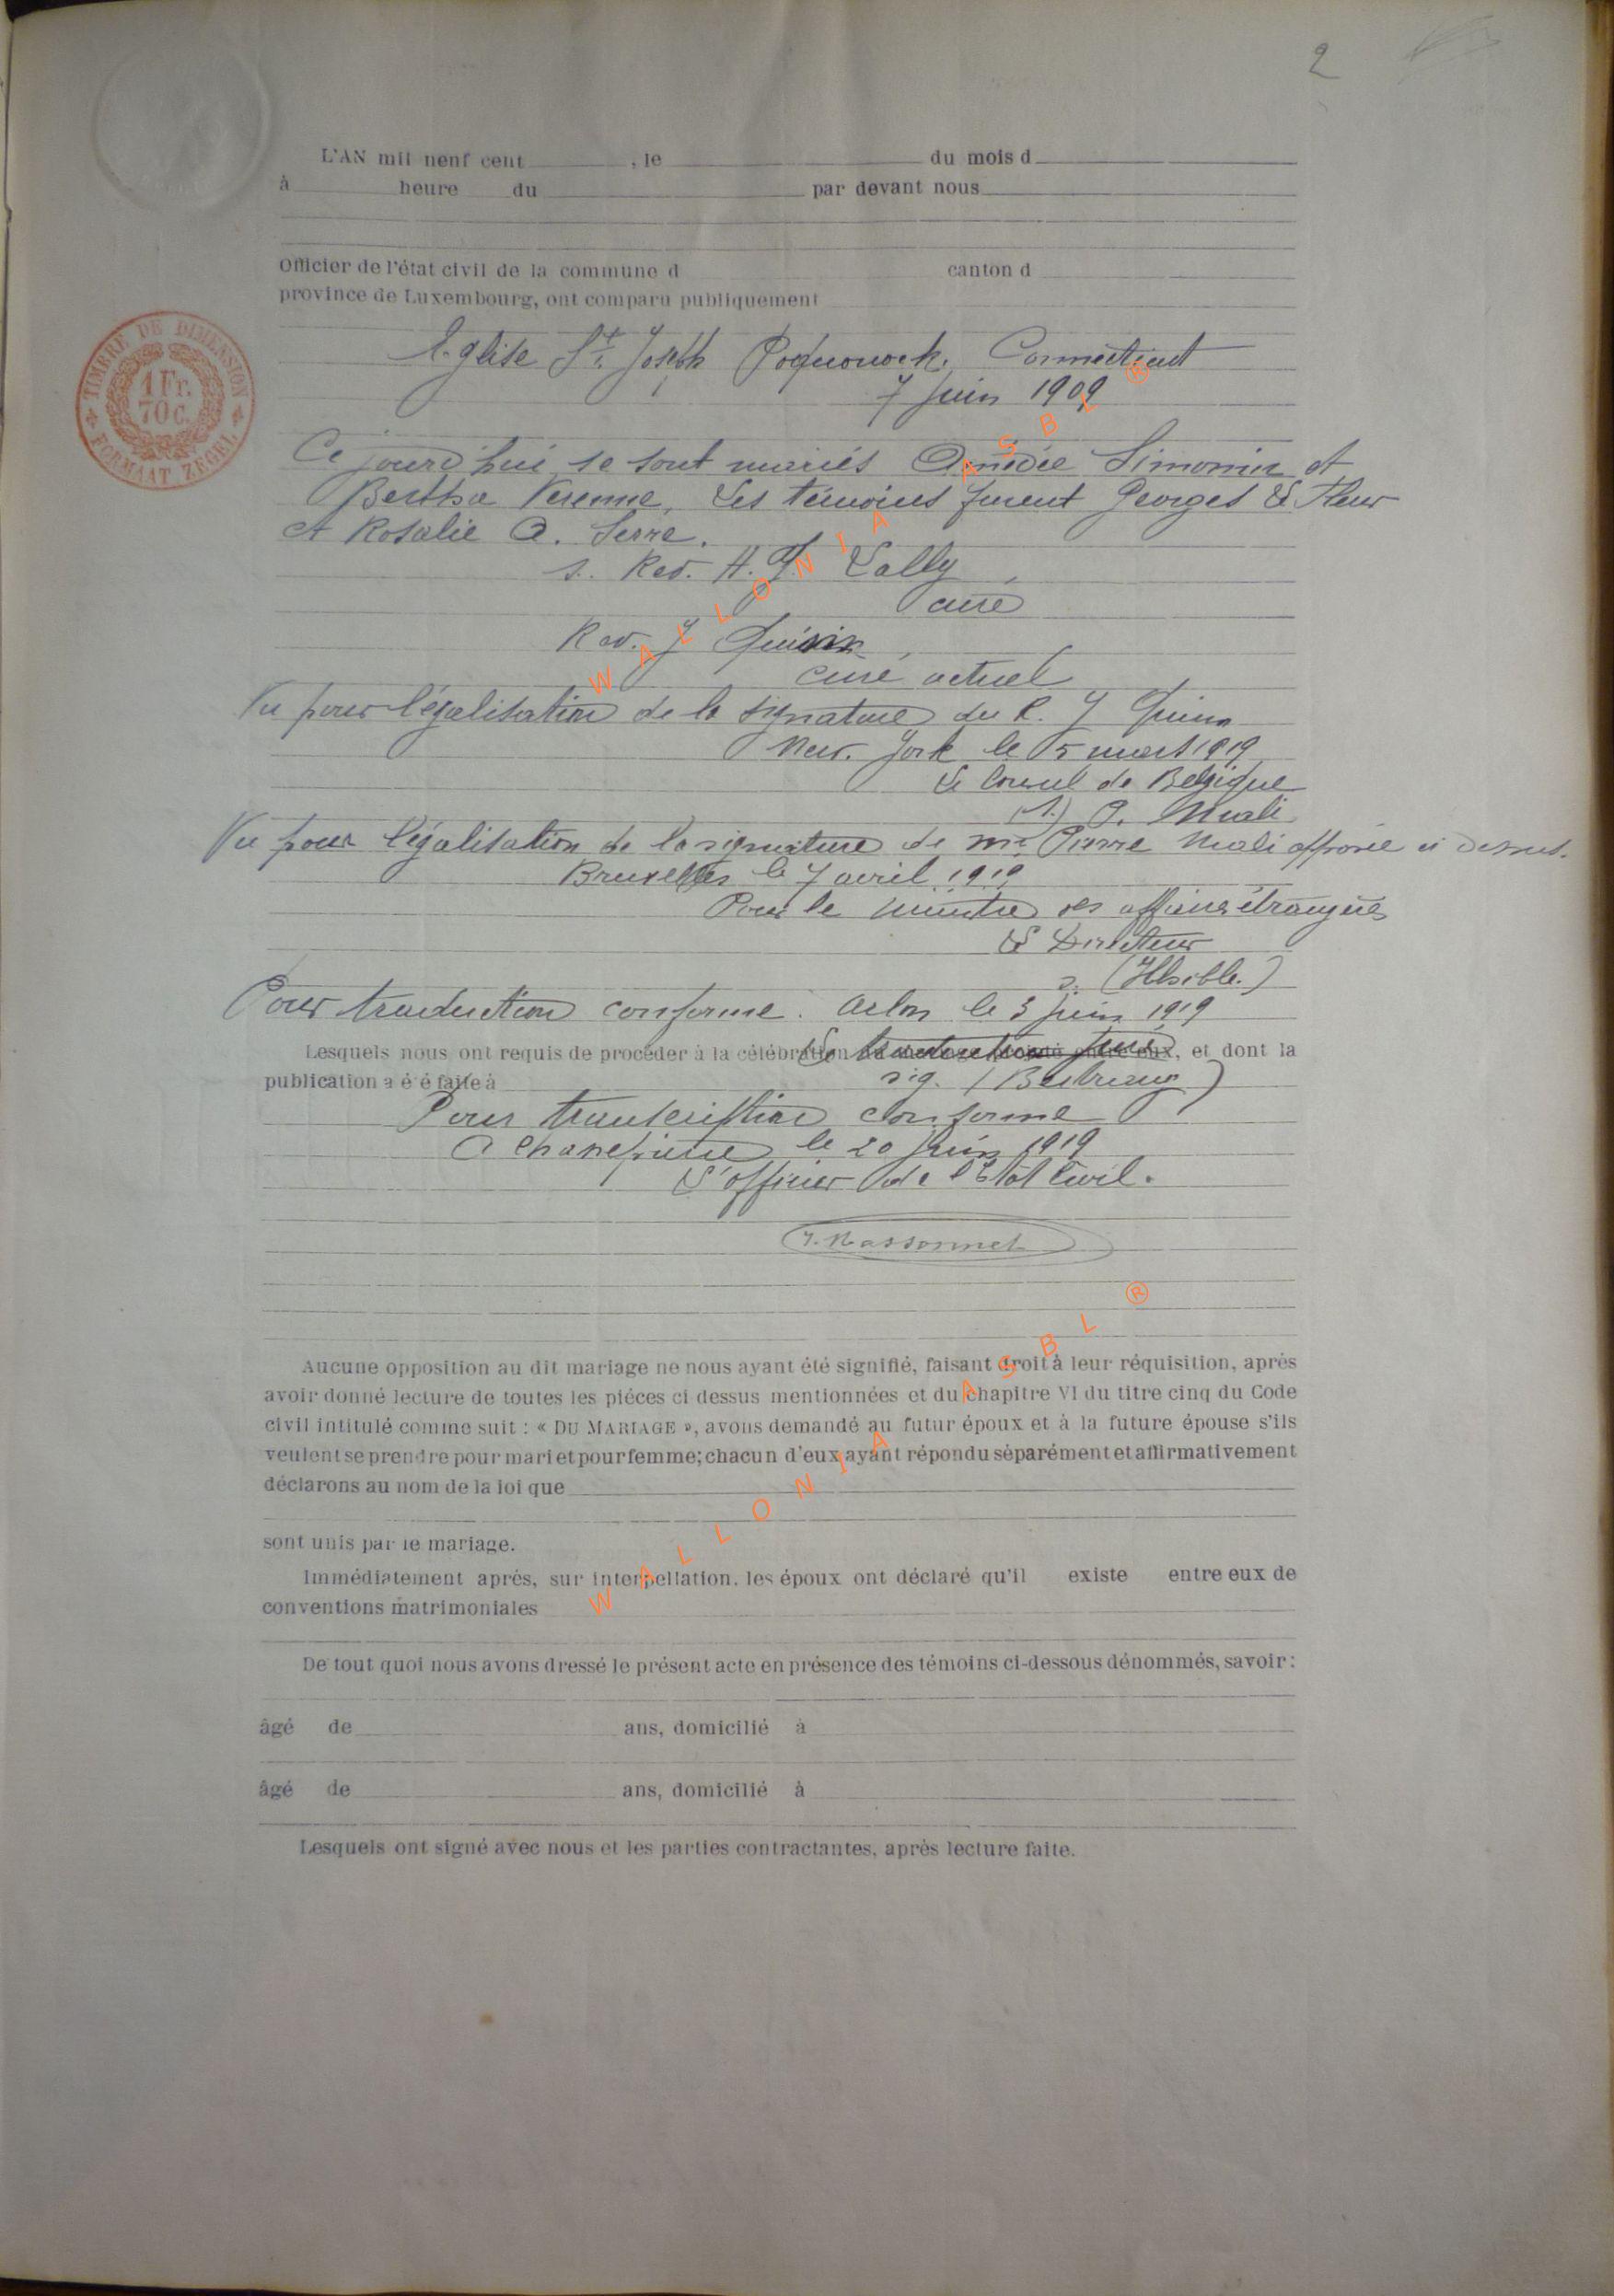 2
L'AN mil neuf cent , le du mois d
à heure du par devant nous
Officier de l'état civil de la commune d canton d
province de Luxembourg, ont comparu publiquement
TIMBRE DE DIMENSION
1 Fr.
70 c.
FORMAAT ZEGEL
Eglise St. Joseph Poquonock, Connecticut
7 juin 1909
Ce jourd'hui se sont mariés Amédée Simonin et
Bertha Verenne, Les témoins furent Georges Fleur
et Rosalie A. Serre.
s. Rev. H. J. Lally
curé
Rev. J Quinn
curé actuel
Vu pour légalisation de la signature du R. J Quinn
New. York le 5 mars 1919
Le Consul de Belgique
(s.) P. Mali
Vu pour légalisation de la signature de Mr Pierre Mali apposée ci dessus.
Bruxelles le 7 avril 1919
Pour le ministre des affaires étrangères
Le Directeur
s. (Illisible.)
Pour traduction conforme. Arlon le 3 juin 1919
Lesquels nous ont requis de procéder à la célébration du mariage projeté entre eux, et dont la
Le traducteur juré
publication a été faite à
sig.
Pour transcription conforme
A Chanepierre le 20 juin 1919
L'officier de l'Etat Civil.
J. Massonnet
Aucune opposition au dit mariage ne nous ayant été signifié, faisant droit à leur réquisition, après
avoir donné lecture de toutes les piéces ci dessus mentionnées et du chapitre VI du titre cinq du Code
civil intitulé comme suit : « DU MARIAGE », avons demandé au futur époux et à la future épouse s'ils
veulent se prendre pour mari et pour femme; chacun d'eux ayant répondu séparément et affirmativement
déclarons au nom de la loi que
sont unis par le mariage.
Immédiatement après, sur interpellation, les époux ont déclaré qu'il existe entre eux de
conventions matrimoniales
De tout quoi nous avons dressé le présent acte en présence des témoins ci-dessous dénommés, savoir :
âgé de ans, domicilié à
âgé de ans, domicilié à
Lesquels ont signé avec nous et les parties contractantes, après lecture faite.
WALLONIA ASBL ®
WALLONIA ASBL ®